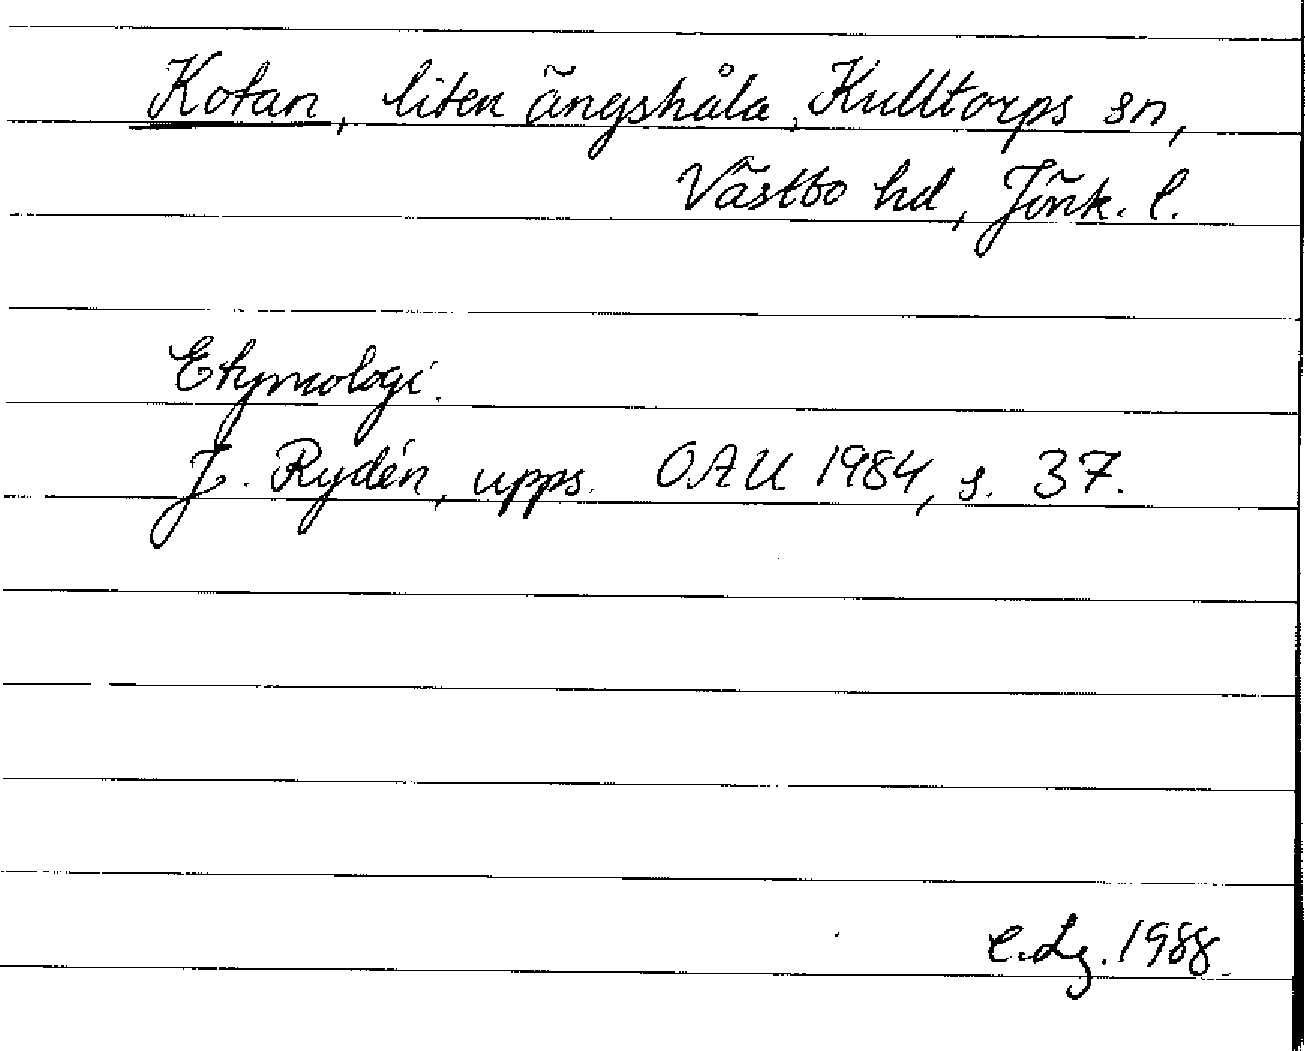 Kotan, liten ängshåla, Kulltorps sn,
Västbo hd, Jönk. l.
Etymologi.
J. Rydén, upps. OAU 1984, s. 37.
C.Lg. 1988